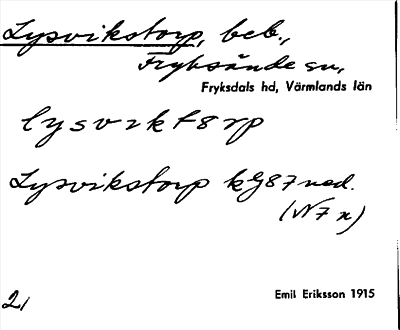 Lysvikstorp, beb.,
Fryksände sn,
Fryksdals hd, Värmlands län
lysvikt8rp
Lysvikstorp kG87 ned.
(N7 x)
21
Emil Eriksson 1915